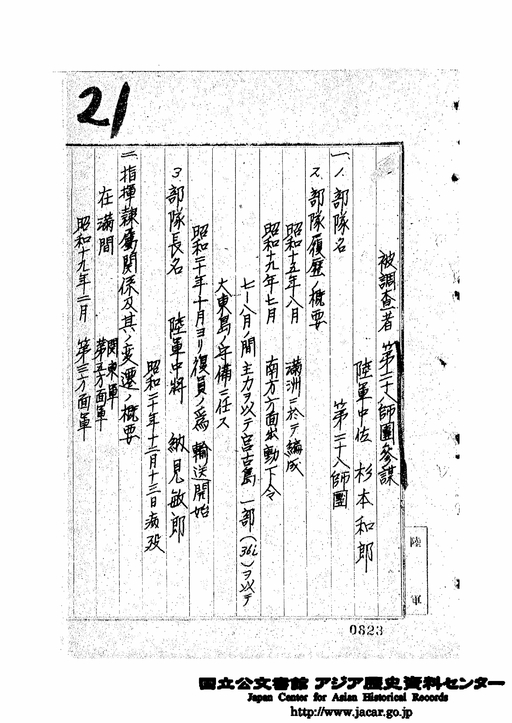 21
被調査者 第二十八師團参謀
陸軍中佐 杉本和郎
一、1. 部隊名 第二十八師團
2. 部隊履歴ノ概要
昭和十五年八月 満洲ニ於テ編成
昭和十九年七月 南方方面出動下令
七-八月ノ間 主力ヲ以テ宮古島 一部(36i)ヲ以テ
大東島ノ守備ニ任ス
昭和二十年十月ヨリ復員ノ為輸送開始
3. 部隊長名 陸軍中將 納見敏郎
昭和二十年十二月十三日病歿
二、指揮隷屬関係及其ノ変遷ノ概要
在満間 関東軍
第三方面軍
昭和十九年二月 第三方面軍
陸軍
0823
国立公文書館 アジア歴史資料センター
Japan Center for Asian Historical Records
http://www.jacar.go.jp